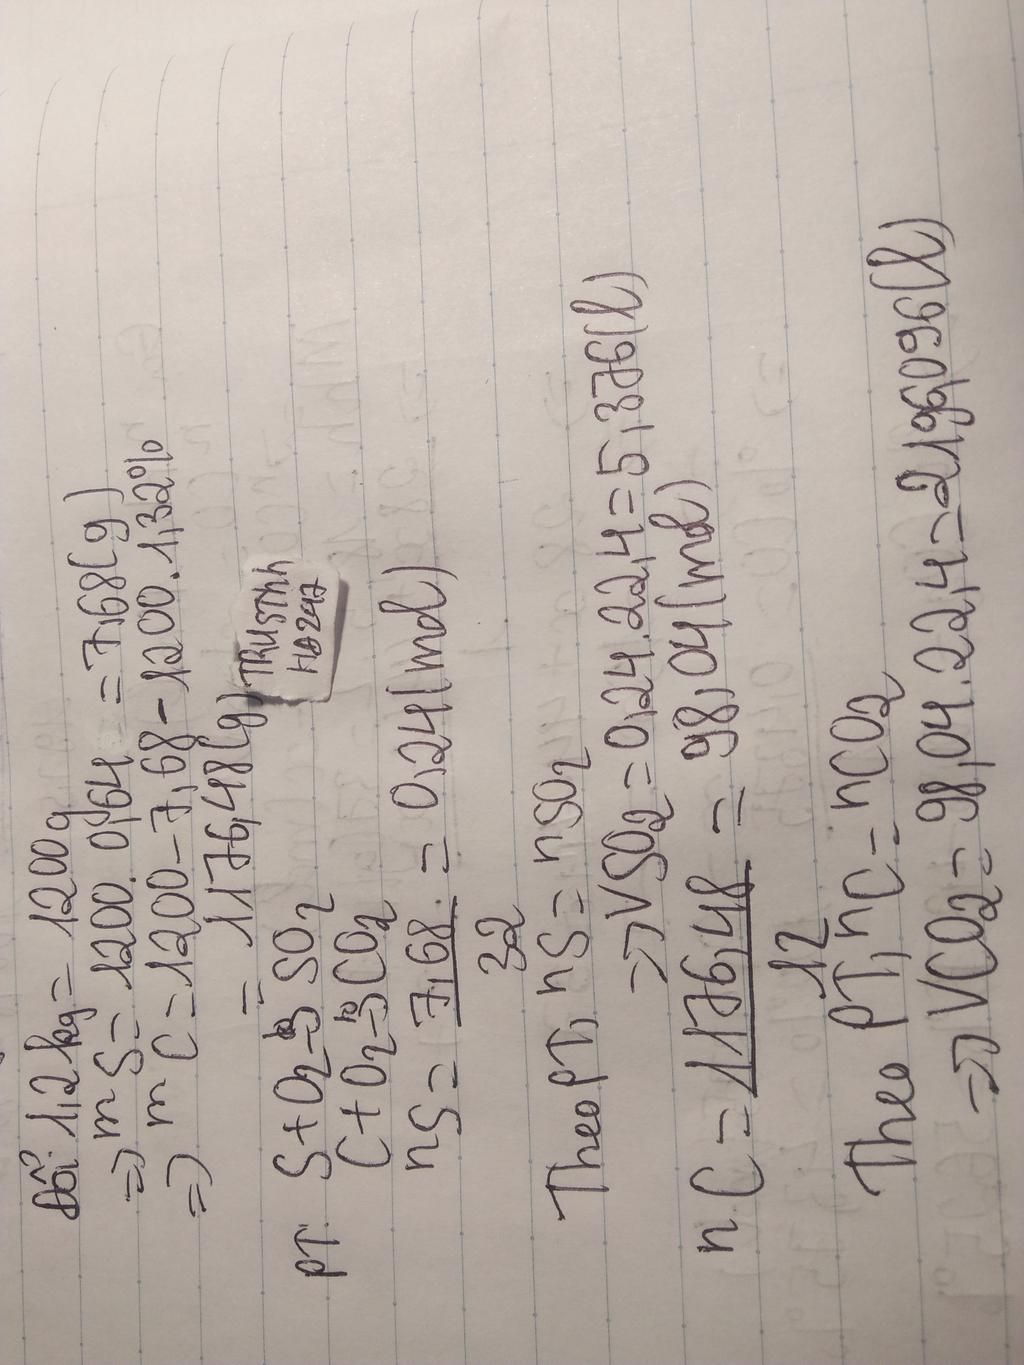 Đổi 1,2 kg = 1200 g
=> m S = 1200. 0,64 = 7,68 (g)
=> m C = 1200 - 7,68 - 1200. 1,32%
= 1176,48 (g)
TRUSTNH
HD247
PT: S + O2 -to-> SO2
C + O2 -to-> CO2
nS = 7,68 / 32 = 0,24 (mol)
Theo PT, nS = nSO2
=> VSO2 = 0,24. 22,4 = 5,376 (l)
n C = 1176,48 / 12 = 98,04 (mol)
Theo PT, nC = nCO2
=> VCO2 = 98,04. 22,4 = 2196,096 (l)